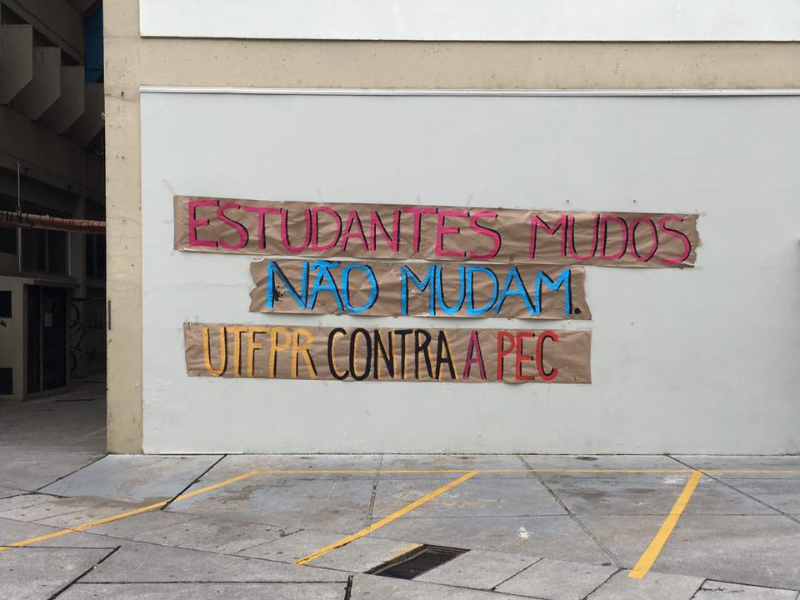 ESTUDANTES MUDOS
NÃO MUDAM.
UTFPR CONTRA A PEC